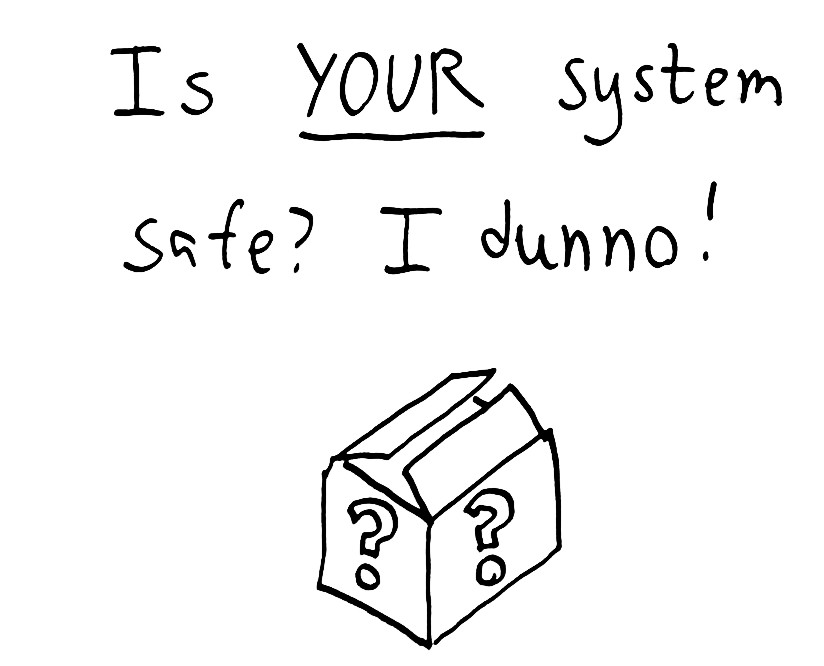 Is YOUR system
safe? I dunno!
? ?